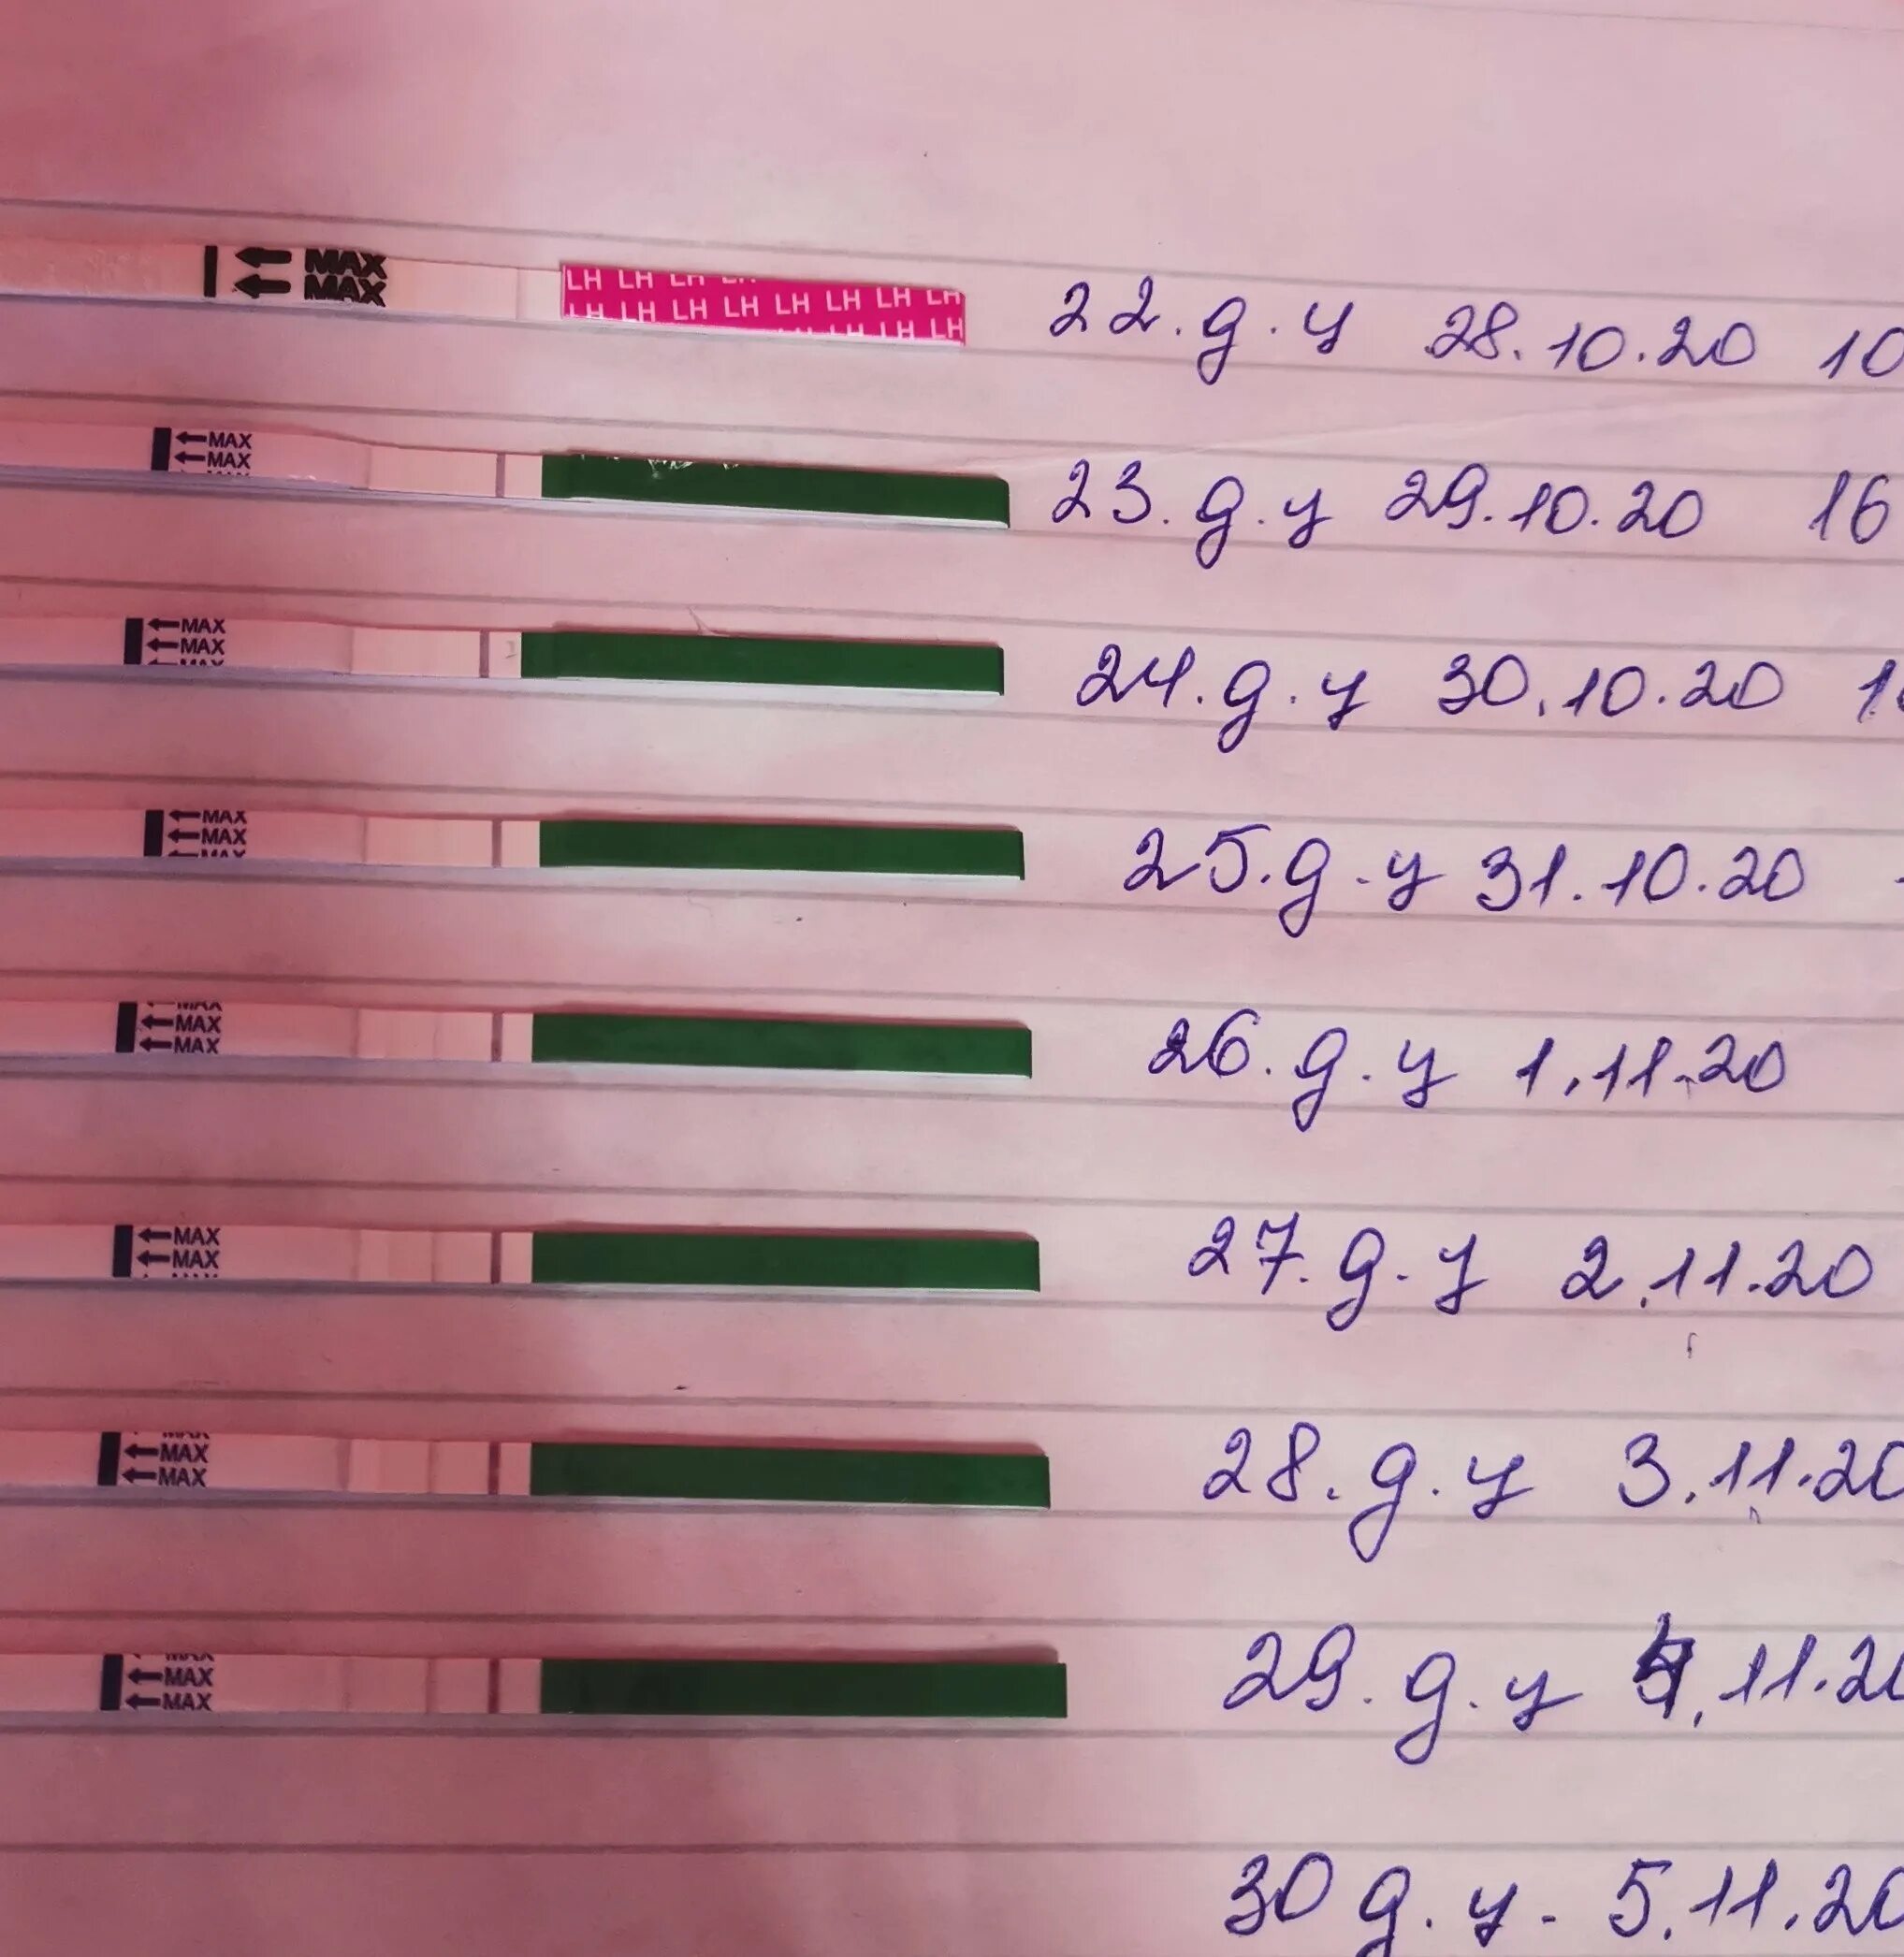 MAX
MAX
LH LH LH LH
LH LH LH LH LH LH LH LH
LH LH LH LH
22.д.ц 28.10.20 10
MAX
MAX
MAX
23.д.ц 29.10.20 16
MAX
MAX
MAX
24.д.ц 30.10.20
MAX
MAX
MAX
25.д.ц 31.10.20
MAX
MAX
MAX
26.д.ц 1.11.20
MAX
MAX
27.д.ц 2.11.20
MAX
MAX
MAX
28.д.ц 3.11.20
MAX
MAX
MAX
29.д.ц 4.11.20
30 д.ц. 5.11.20